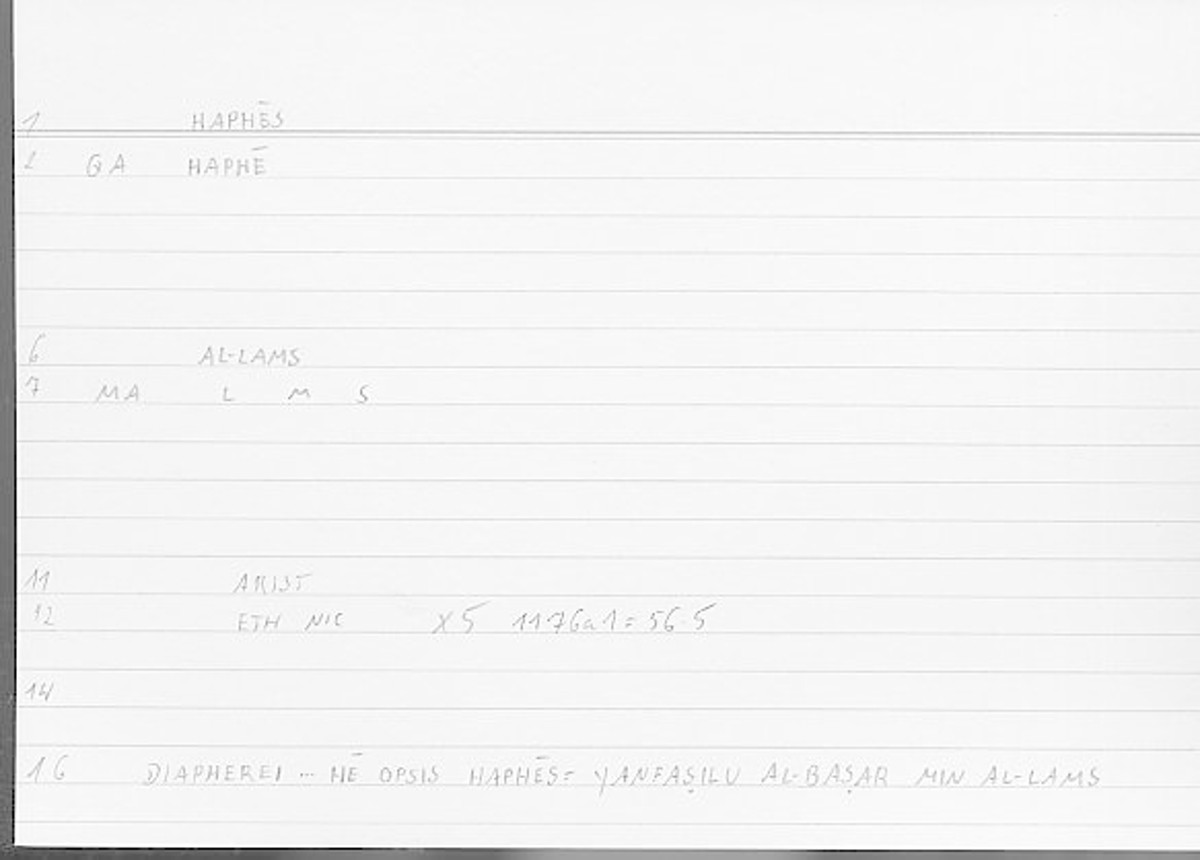 1 HAPHĒS
2 GA HAPHĒ
6 AL-LAMS
7 MA L M S
11 ARIST
12 ETH NIC X5 1176a1=56.5
14
16 DIAPHEREI ... HĒ OPSIS HAPHĒS= YANFAṢILU AL-BAṢAR MIN AL-LAMS